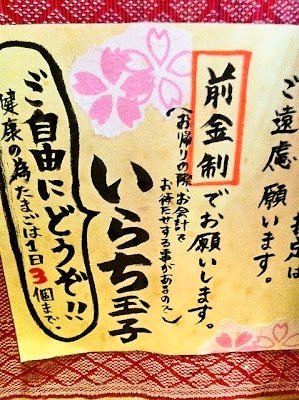 ご遠慮願います。
前金制でお願いします。
(お帰りの際、お会計で
お待たせする事があるので)
いらち玉子
ご自由にどうぞ!!
健康の為たまごは1日3個まで。